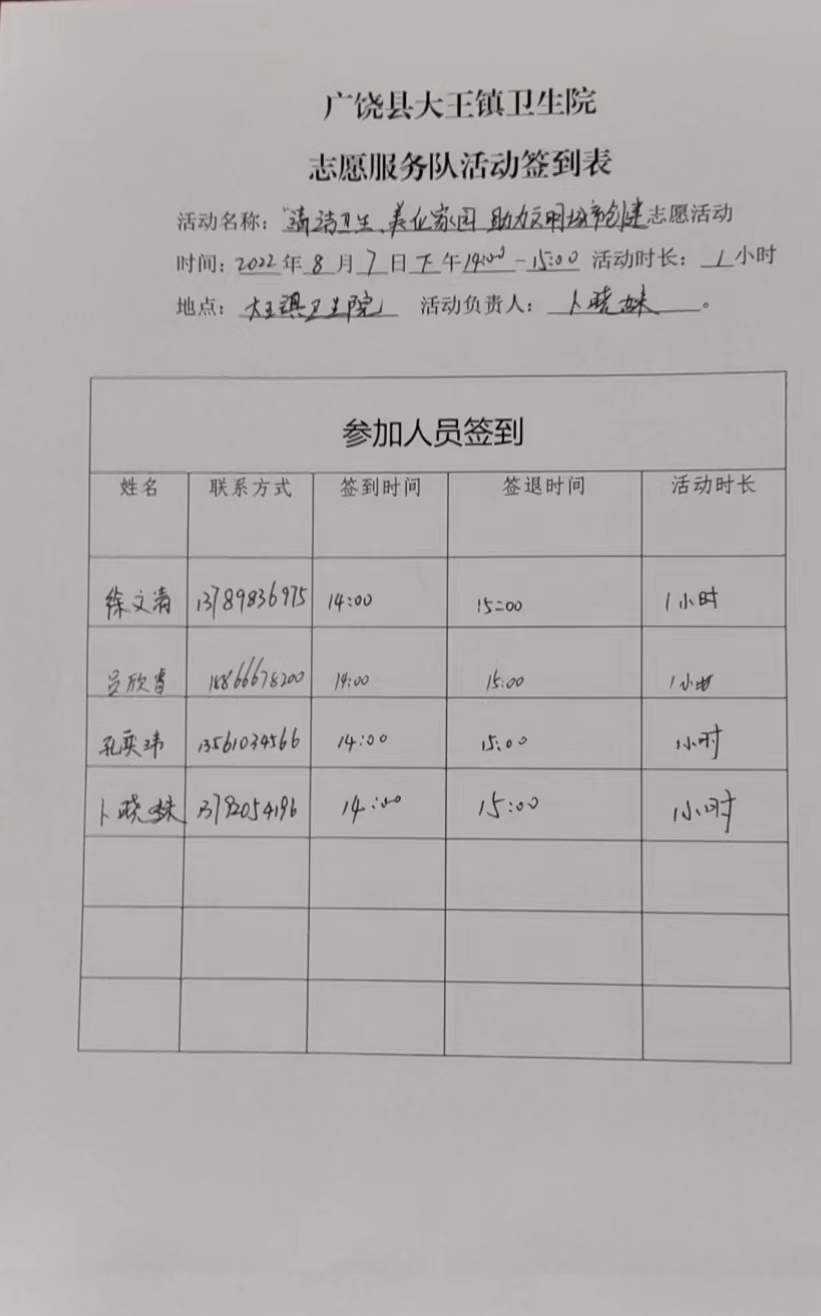 广饶县大王镇卫生院
志愿服务队活动签到表
活动名称：“清洁卫生、美化家园 助力文明城市创建志愿活动
时间：2022年8月7日下午14:00-15:00 活动时长：1小时
地点：大王镇卫生院 活动负责人：卜晓妹。
参加人员签到
姓名 联系方式 签到时间 签退时间 活动时长
徐文清 13789836975 14:00 15:00 1小时
吕欣睿 18866678200 14:00 15:00 1小时
孔奕玮 13561034566 14:00 15:00 1小时
卜晓妹 13792054196 14:00 15:00 1小时